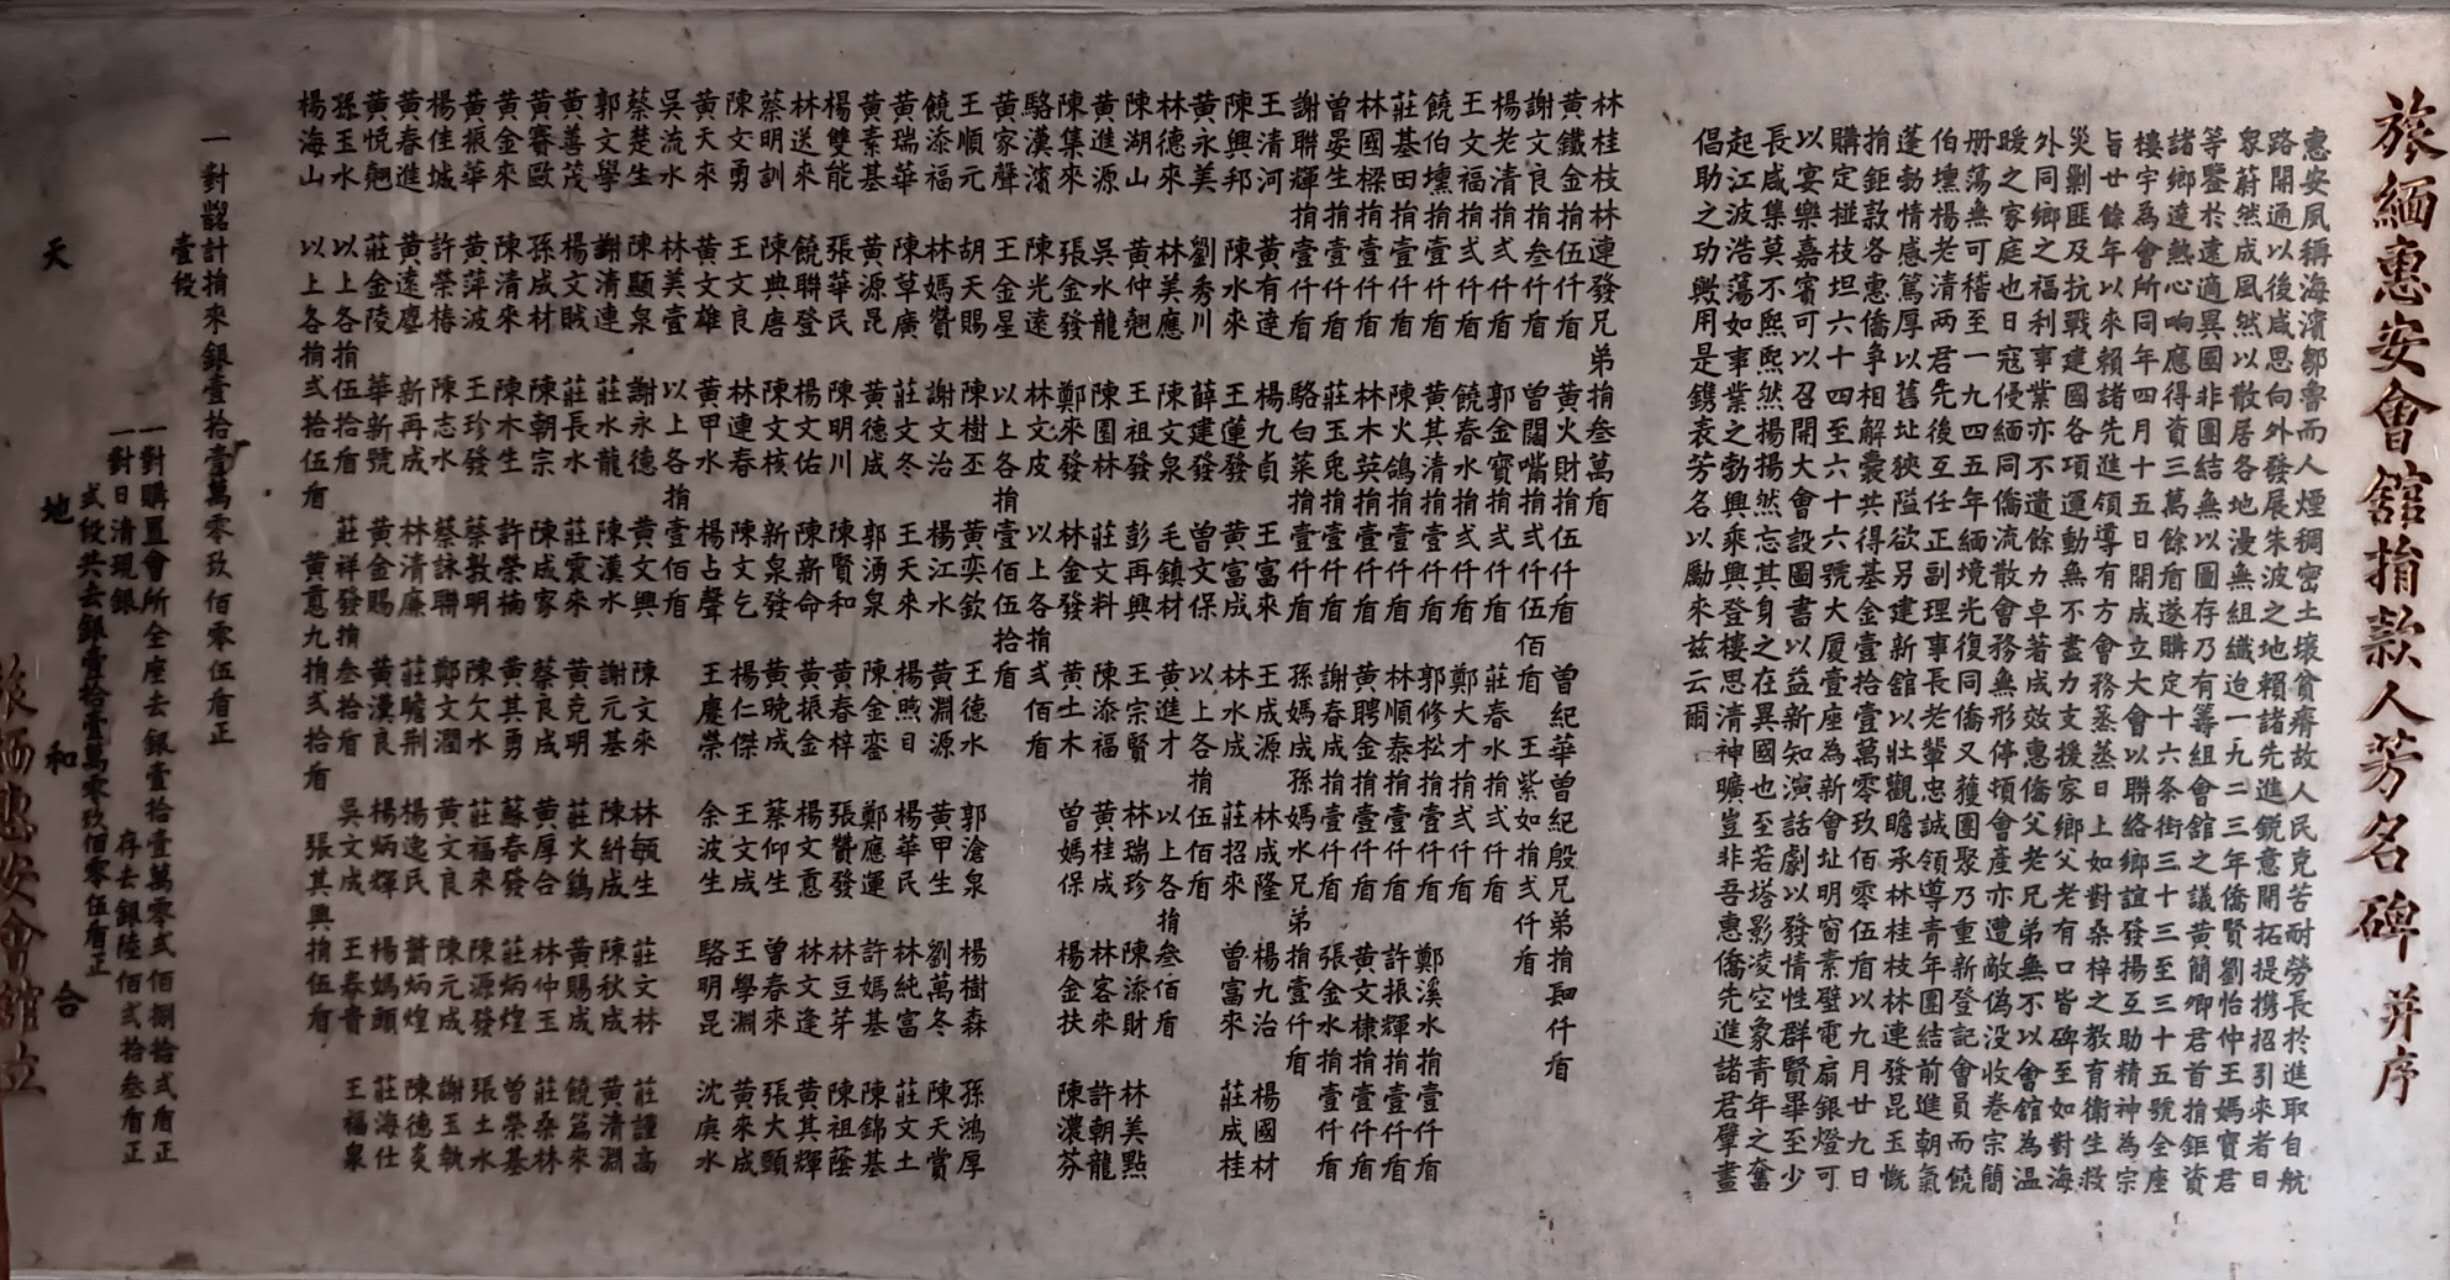 旅緬惠安會舘捐款人芳名碑并序
惠安夙稱海濱鄒魯而人煙稠密土壤貧瘠故人民克苦耐勞長於進取自航
路開通以後咸思向外發展朱波之地賴諸先進銳意開拓提携招引來者日
衆蔚然成風然以散居各地漫無組織迨一九二三年僑賢劉怡仲王媽寶君
等鑒於遠適異國非團結無以圖存乃有籌組會館之議黃簡卿君首捐鉅資
諸鄉逹熱心响應得資三萬餘盾遂購定十六条街三十三至三十五號全座
樓宇為會所同年四月十五日開成立大會以聯絡鄉誼發揚互助精神為宗
旨廿餘年以來賴諸先進領導有方會務蒸蒸日上如對桑梓之教育衛生救
災剿匪及抗戰建國各項運動無不盡力支援家鄉父老有口皆碑至如對海
外同鄉之福利事業亦不遺餘力卓著成效惠僑父老兄弟無不以會舘為温
暖之家庭也日寇侵緬同僑流散會務無形停頓會產亦遭敵偽没收卷宗簡
册蕩無可稽至一九四五年緬境光復同僑又獲團聚乃重新登記會員而饒
伯壎楊老清兩君先後互任正副理事長老輩忠誠領導青年團結前進朝氣
蓬勃情感篤厚以舊址狹隘欲另建新舘以壯觀瞻承林桂枝林連發昆玉慨
捐鉅款各惠僑爭相解囊共得基金壹拾壹萬零玖佰零伍盾以九月廿九日
購定椪枝坦六十四至六十六號大厦壹座為新會址明窗素璧電扇銀燈可
以宴樂嘉賓可以召開大會設圖書以益新知演話劇以發情性群賢畢至少
長咸集莫不熙熙然揚揚然忘其身之在異國也至若塔影凌空象青年之奮
起江波浩蕩如事業之勃興乘興登樓思清神曠豈非吾惠僑先進諸君擘畫
倡助之功歟用是鐫袁芳名以勵來兹云爾
林桂枝林連發兄弟捐叁萬盾
黃鐵金捐伍仟盾 黃火財捐伍仟盾 曾紀華曾紀殷兄弟捐肆仟盾
謝文良捐叁仟盾 曾闊嘴捐弍仟伍佰盾 王紫如捐弍仟盾
楊老清捐弍仟盾 郭金寶捐弍仟盾 莊春水捐弍仟盾
王文福捐弍仟盾 饒春水捐弍仟盾 鄭大才捐弍仟盾
饒伯壎捐壹仟盾 黃其清捐壹仟盾 郭修松捐壹仟盾 鄭溪水捐壹仟盾
莊基田捐壹仟盾 陳火鴿捐壹仟盾 林順泰捐壹仟盾 許振輝捐壹仟盾
林國樑捐壹仟盾 林木英捐壹仟盾 黃聘金捐壹仟盾 黃文棣捐壹仟盾
曾晏生捐壹仟盾 莊玉兎捐壹仟盾 謝春成捐壹仟盾 張金水捐壹仟盾
謝聯輝捐壹仟盾 駱白菜捐壹仟盾 孫媽成孫媽水兄弟捐壹仟盾
王清河 黃有逹 楊九貞 王富來 王成源 林成隆 楊九治 楊國材
陳興邦 陳水來 王蓮發 黃富成 林水成 莊招來 曾富來 莊成桂
黃永美 劉秀川 薛建發 曾文保 以上各捐伍佰盾
林德來 林美應 陳文泉 毛鎮材 黃進才 以上各捐叁佰盾
陳湖山 黃仲翹 王祖發 彭再興 王宗賢 林瑞珍 陳添財 林美點
黃進源 吳水龍 陳圍林 莊文料 陳添福 黃桂成 林客來 許朝龍
陳集來 張金發 鄭來發 林金發 黃土木 曾媽保 楊金扶 陳濃芬
駱漢濱 陳光遠 林文皮 以上各捐弍佰盾
黃家聲 王金星 以上各捐壹佰伍拾盾
王順元 胡天賜 陳樹丕 黃奕欽 王德水 郭滄泉 楊樹森 孫鴻厚
饒添福 林媽贊 謝文治 楊江水 黃淵源 黃甲生 劉萬冬 陳天賞
黃瑞華 陳草廣 莊文冬 王天來 楊煦目 楊華民 林純富 莊文土
黃素基 黃源昆 黃德成 郭湧泉 陳金鑾 鄭應運 許媽基 陳錦基
楊雙能 張華民 陳明川 陳賢和 黃春梓 張贊發 林豆芽 陳祖蔭
林送來 饒聯登 楊文佑 陳新命 黃振金 楊文慝 林文逢 黃其輝
蔡明訓 陳典唐 陳文核 新泉發 黃晚成 蔡仰生 曾春來 張大頭
陳文勇 王文良 林連春 陳文乞 楊仁傑 王文成 王學淵 黃來成
黃天來 黃文雄 黃甲水 楊占聲 王慶榮 余波生 駱明昆 沈庚水
吳流水 林美壹 以上各捐壹佰盾
蔡楚生 陳顯泉 謝永德 黃文興 陳文來 林毓生 莊文林 莊謹高
郭文學 謝清連 莊水龍 陳漢水 謝元基 陳糾成 陳秋成 黃清淵
黃善茂 楊文賊 莊長水 莊震來 黃克明 莊火鷄 黃賜成 饒篇來
黃賽歐 孫成材 陳朝宗 陳成家 蔡良成 黃厚合 林仲玉 莊桑林
黃金來 陳清來 陳木生 許榮楠 黃其勇 蘇春發 莊炳煌 曾榮基
黃振華 黃萍波 王珍發 蔡敦明 陳欠水 莊福來 陳源發 張土水
楊佳城 許榮椿 陳志水 蔡詠聯 鄭文潤 黃文良 陳元成 謝玉執
黃春進 黃遠塵 新再成 林清廉 莊瞻荆 楊逸民 蕭炳煌 陳德炎
黃悅翹 莊金陵 華新號 黃金賜 黃漢良 楊炳輝 楊媽頭 莊海仕
孫玉水 以上各捐伍拾盾 莊祥發捐叁拾盾 吳文成 王春貴 王福泉
楊海山 以上各捐弍拾伍盾 黃慝九捐弍拾盾 張其興捐伍盾
一對計捐來銀壹拾壹萬零玖佰零伍盾正
壹段
一對購置會所全座去銀壹拾壹萬零弍佰捌拾弍盾正
一對日清現銀存去銀陸佰弍拾叁盾正
弍段共去銀壹拾壹萬零玖佰零伍盾正
天地和合
旅緬惠安會舘立